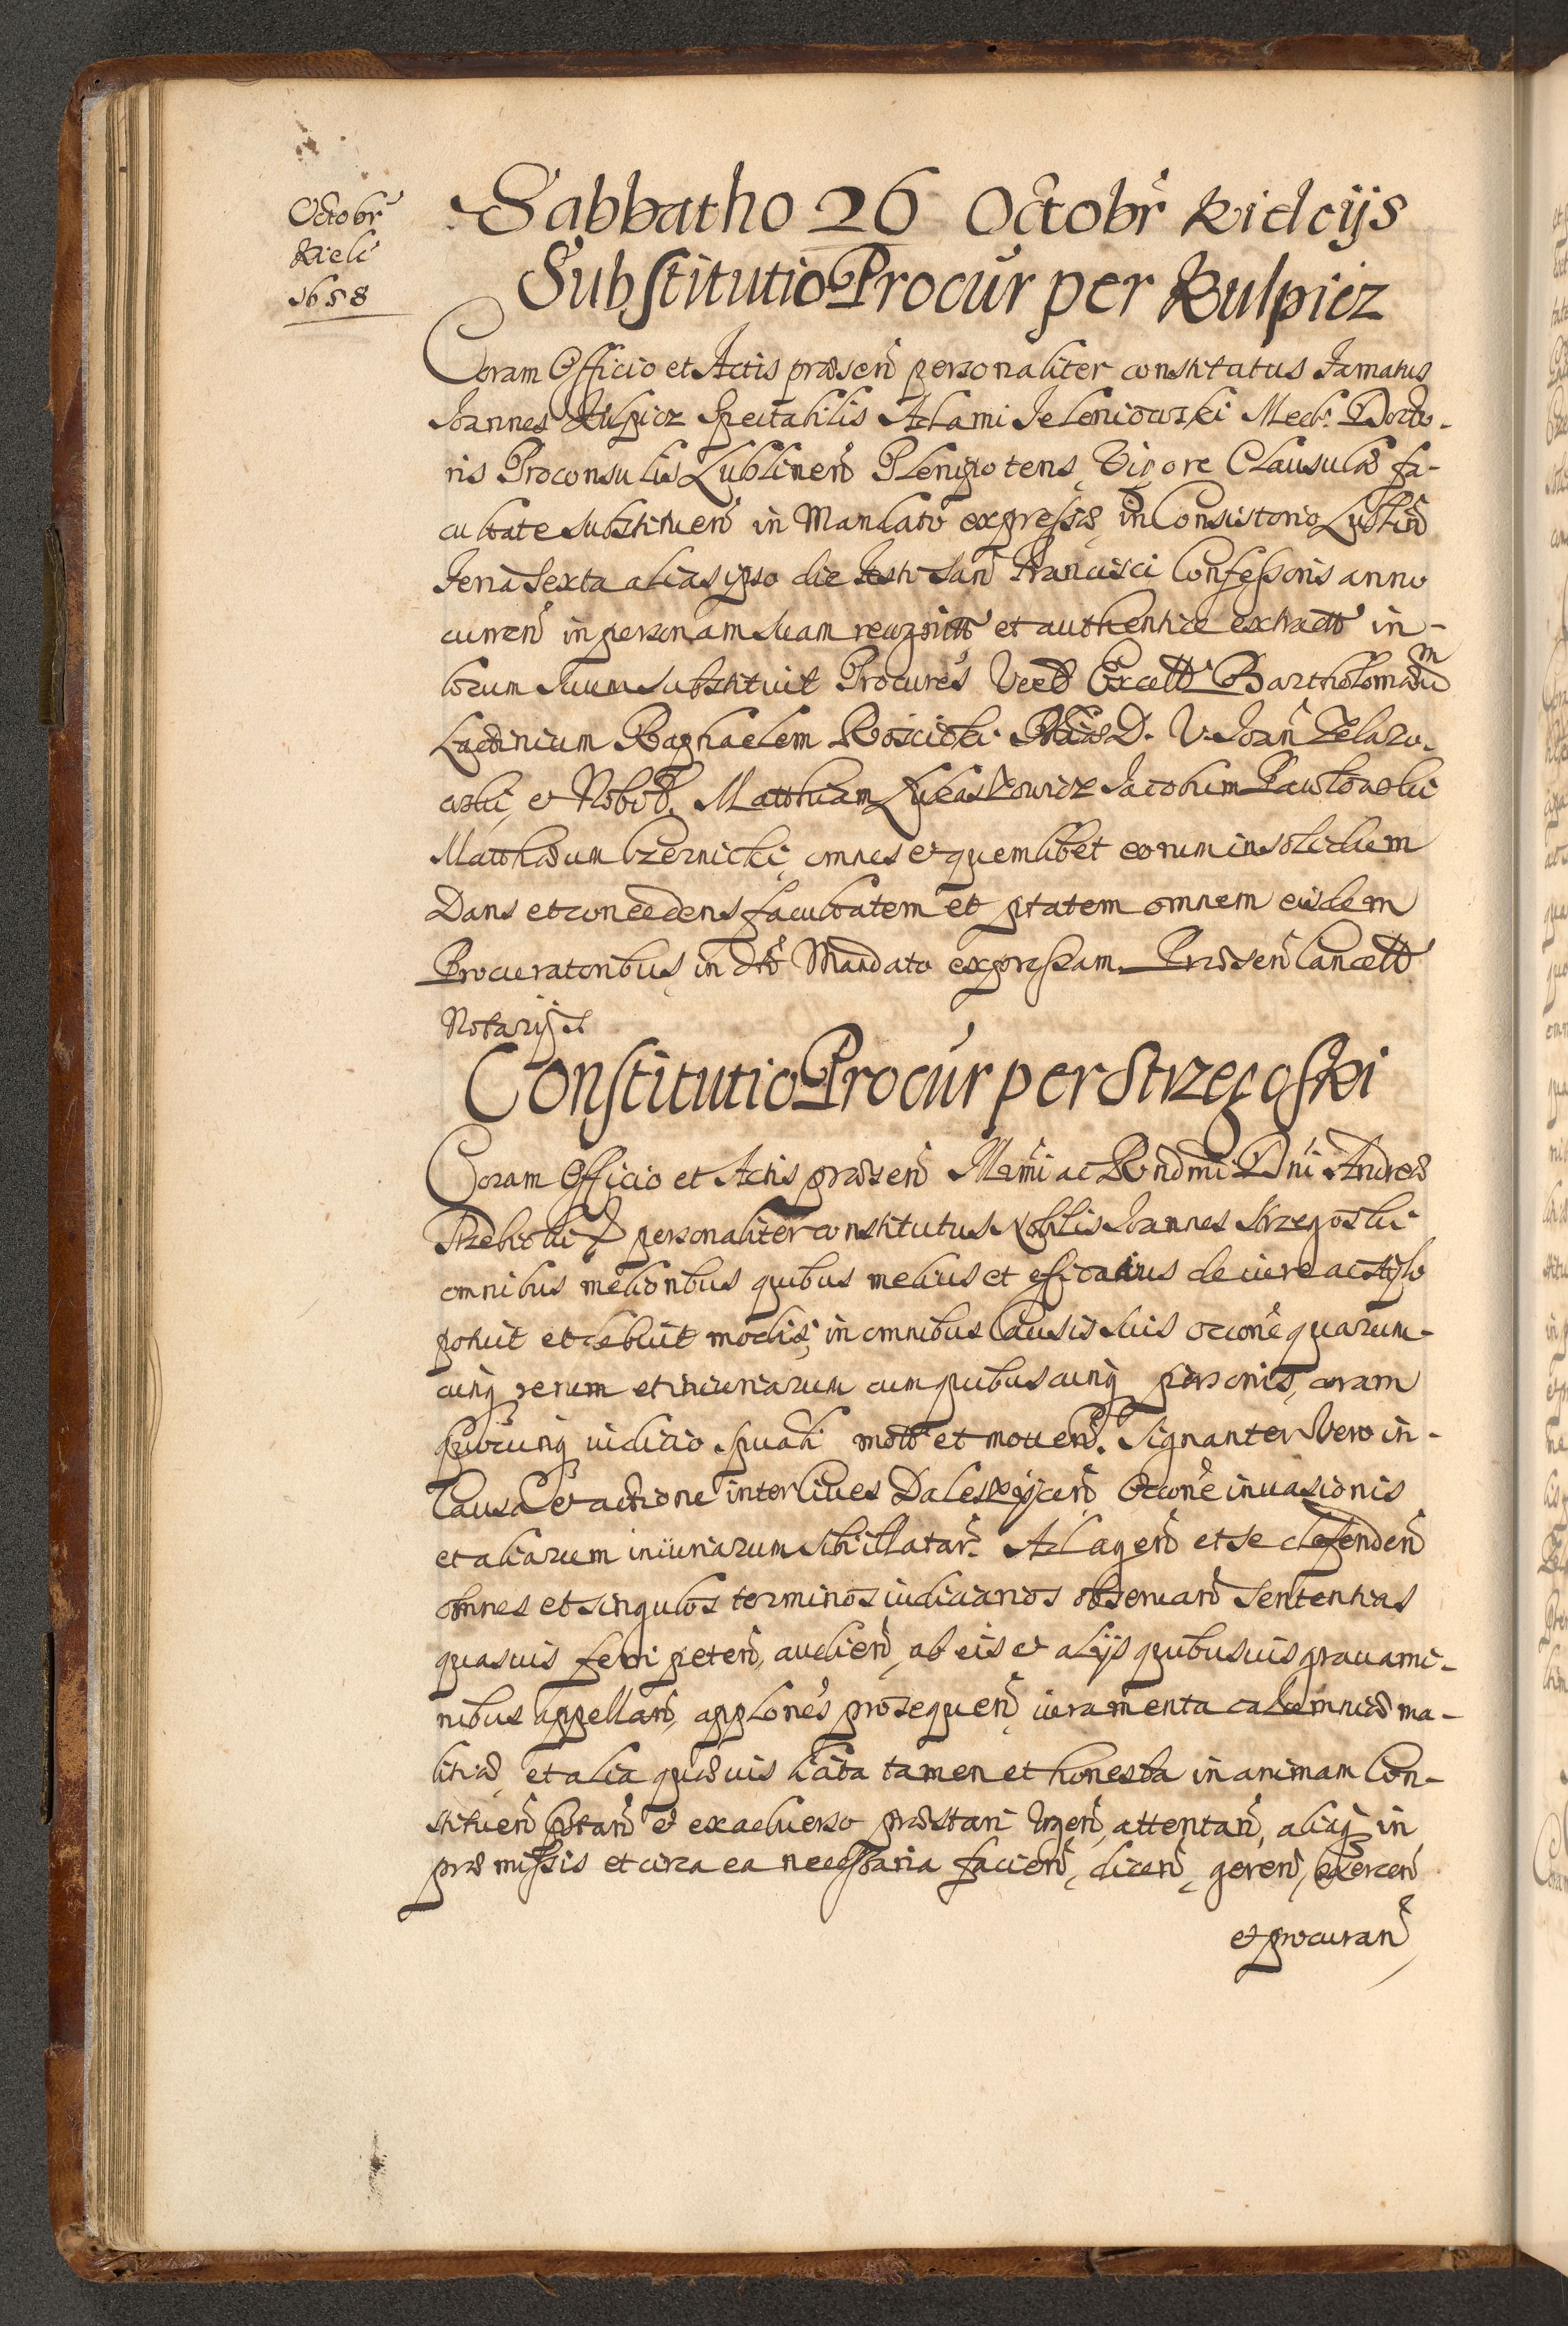 Octobr
Kielc
1658
Sabbatho 26 Octobr Kielcijs
Substitutio Procur per Kulpicz
Coram Officio et Actis præsen personaliter constitutus Famatus
Joannes Kulpicz Spectabilis Adami Jeleniowski Med. Docto-
ris Proconsulis Lublinen Plenipotens, Vigore Clausulæ fa-
cultate substituen in Mandato expressæ, in Consistorio Lublin
Feria Sexta alias ipso die Festi San Francisci Confessoris anno
curren in personam suam recognit et authentice extract in-
locum suum substituit Procures Vred Excell Bartholomæum
Lactinium Raphaelem Kościcki D. V. Joan Zelazo-
wski, et Nobil. Matthiam Lukaskowicz Jacobum Pawlowski
Matthæum Czernicki, omnes et quemlibet eorum insolidum
Dans et concedens facultatem et ptatem omnem eisdem
Procuratoribus, in dto Mandato expressam. Præsen Cancell
Notarijs
Constitutio Procur per Strzegoski
Coram Officio et Actis præsen Illmi ac Rndmi Dni Andreæ
Trzebicki & personaliter constitutus Nobilis Joannes Strzegoski
omnibus melioribus quibus melius et efficatius de iure ac stylo
potuit et debuit modis, in omnibus Causis suis occione quarum-
cunq rerum et iniuriarum cum quibuscunq personis, coram
quocunq iudicio spuali mott et mouen. Signanter Vero in-
Causa et actione inter Ciues Daleszycen Occone inuasionis
et aliarum iniuriarum sibi illatar. Ad agen et se defenden
omnes et singulos terminos iudiciarios obseruan Sententias
quasuis ferri peten, audien, ab eis et alijs quibusuis grauami-
nibus appellan, applones prosequen iuramenta calumniæ ma-
litiæ et alia quæuis licita tamen et honesta in animam Con-
stituen pstan et ex aduerso præstari Vrgen, attentan, aliaq in
præmissis et circa ea necessaria facien, dicen, geren, exercen
et procuran